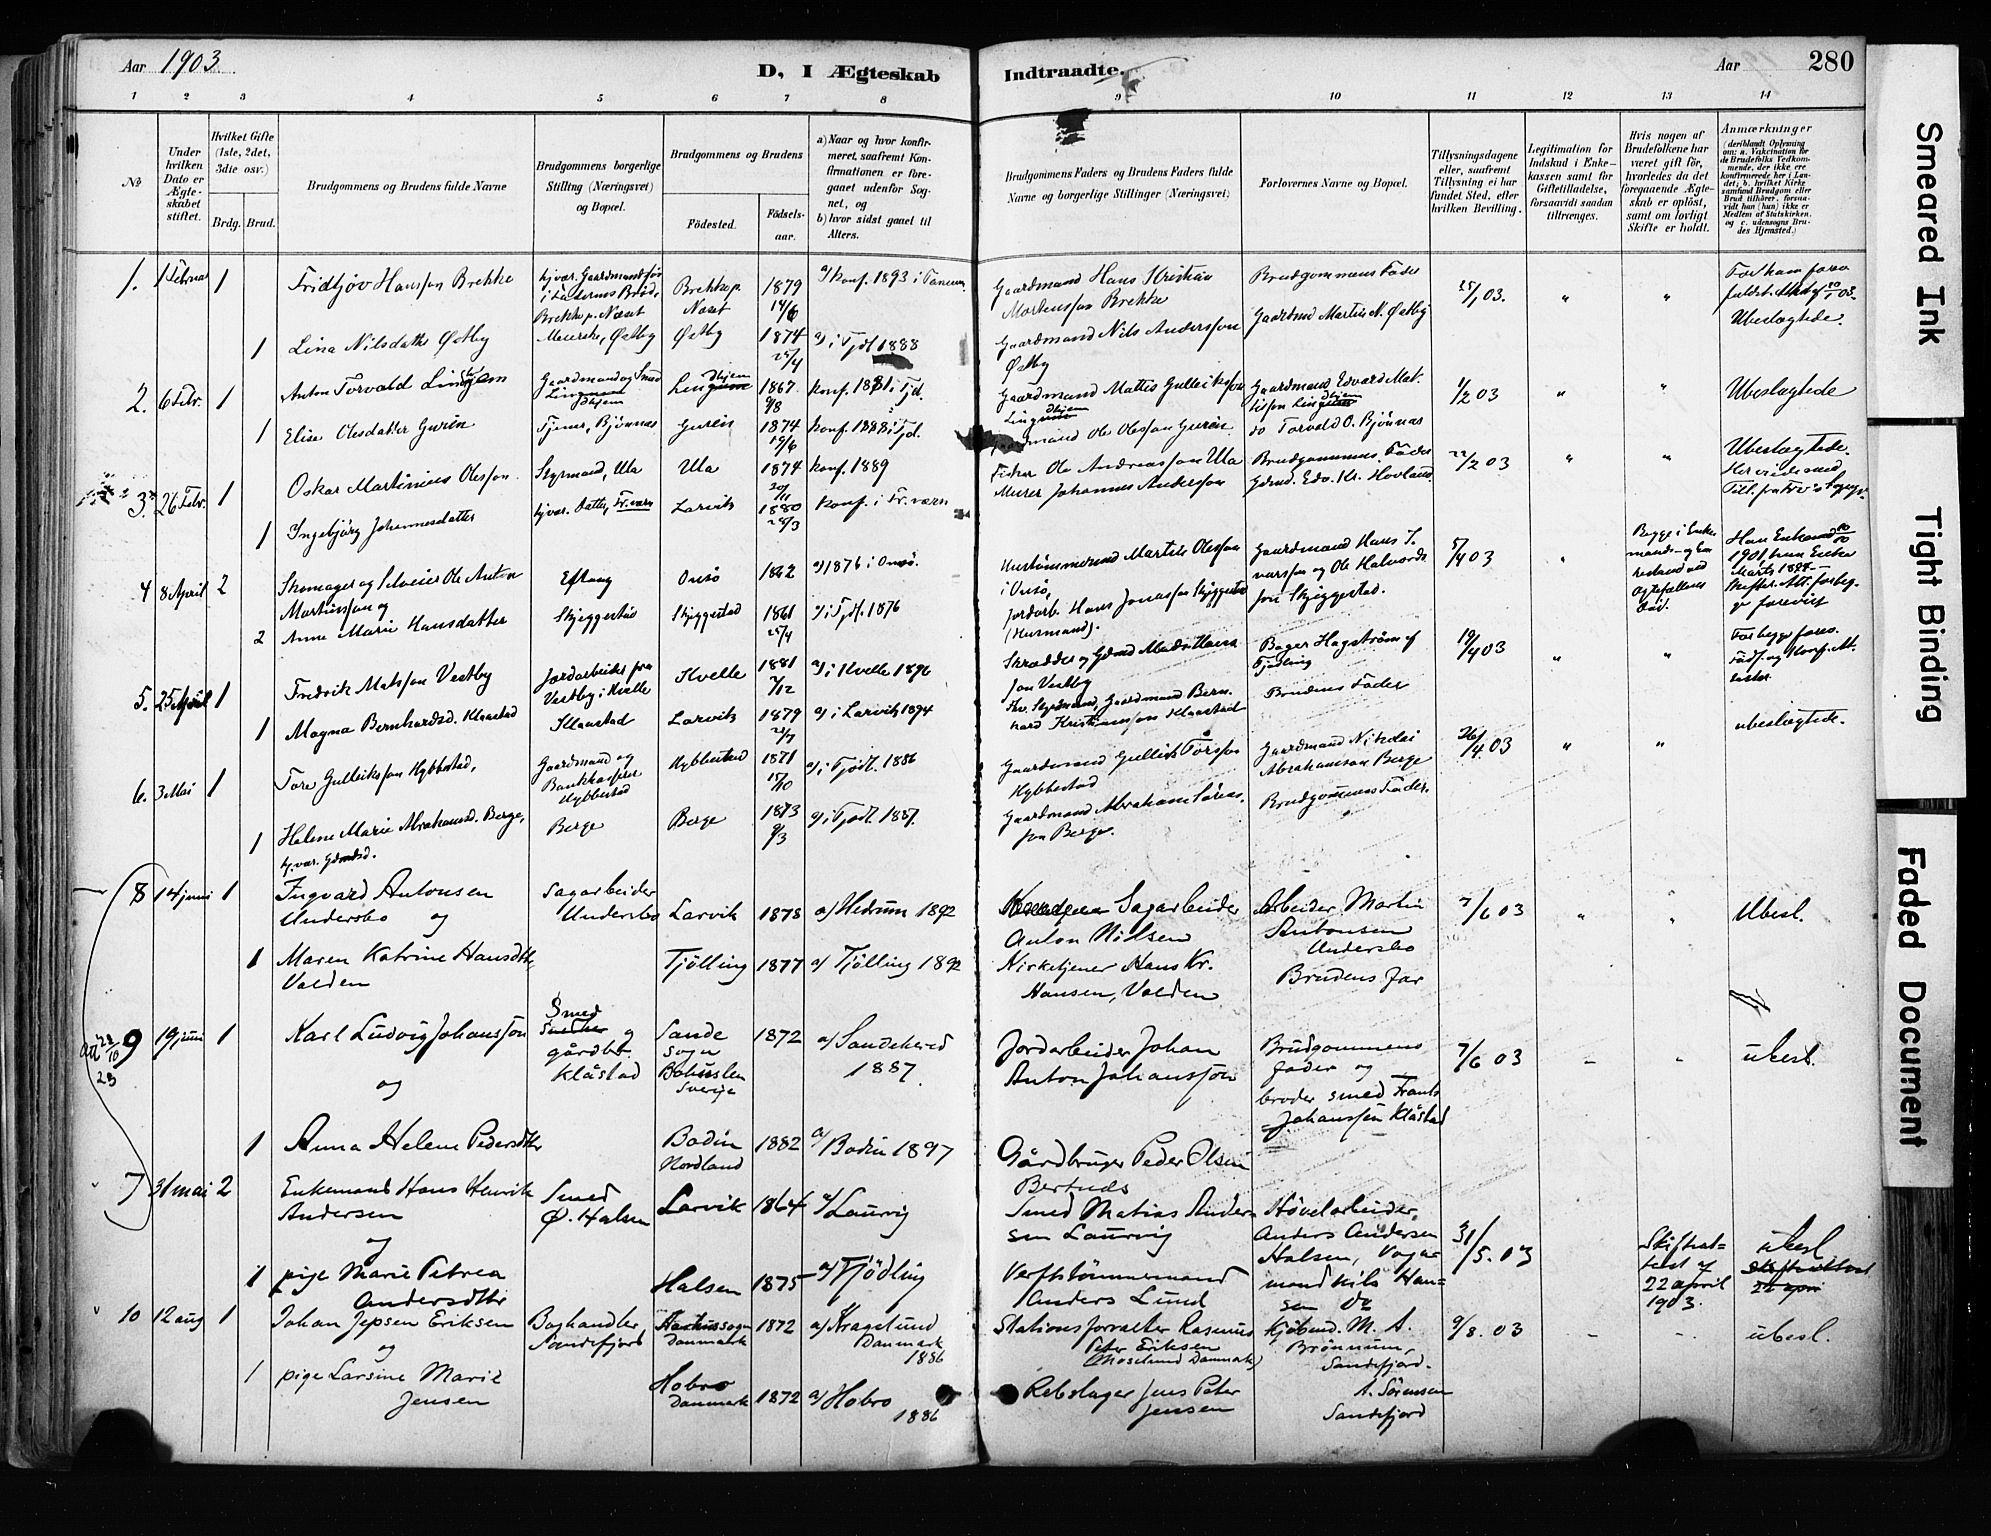 Aar 1903
D, I Ægteskab Indtraadte.
Aar 280
1 2 3 4 5 6 7 8 9 10 11 12 13 14
№
Under hvilken Dato er Ægteskabet stiftet.
Hvilket Gifte (1ste, 2det, 3die osv.)
Brdg. Brud.
Brudgommens og Brudens fulde Navne
Brudgommens borgerlige Stilling (Næringsvei) og Bopæl.
Brudgommens og Brudens
Fødested. Fødselsaar.
a) Naar og hvor konfirmeret, saafremt Konfirmationen er foregaaet udenfor Sognet, og
b) hvor sidst gaaet til Alters.
Brudgommens Faders og Brudens Faders fulde Navne og borgerlige Stillinger (Næringsvei)
Forlovernes Navne og Bopæl.
Tillysningsdagene eller, saafremt Tillysning ei har fundet Sted, efter hvilken Bevilling.
Legitimation for Indskud i Enkekassen samt for Giftetilladelse, forsaavidt saadan tiltrænges.
Hvis nogen af Brudefolkene har været gift før, hvorledes da det foregaaende Ægteskab er opløst, samt om lovligt Skifte er holdt.
Anmærkninger (deriblandt Oplysning om: a. Vakcination for de Brudefolks Vedkommende, der ikke ere konfirmerede her i Landet; b. hvilket Kirkesamfund Brudgom eller Brud tilhører, forsaavidt han (hun) ikke er Medlem af Statskirken, og c. udensogns Brudes Hjemsted.)
1. 1 Februar 1 Fridtjov Hansson Brekke
Brekke p. Næset
Brekke p. Næset 1879 14/6
a) konf. 1893 i Tanum
Gaardmand Hans Kristian Martensson Brekke
Brudgommens Fader
25/1 03. " "
1 Lina Nilsdatter Østby
Meierske, Østby Østby 1874 25/4
a) i Tjøl 1888
Gaardmand Nils Andersson Østby
Gaardmd Martin N. Østby
Ubeslægtede.
2. 6 Febr. 1 Anton Torvald Lingjem
Gaardmand og Smed
1867 9/8
konf. 1881 i Tjøl.
Gaardmand Mattis Gulliksson
Gaardmand Edvard Matsson
1/2 03 " " Ubeslægtede
1 Elise Olesdatter Guren
Tjener, Bjønnes Guren 1874 19/6
konf. 1888 i Tjøl.
Gaardmand Ole Olesson Guren
do Torvald O. Bjønnes
3. 26 Febr. 1 Oskar Martinius Olesson
Styrmand, Ula Ula 1874 30/11
konf. 1889
Fisker Ole Andreasson Ula
Brudgommens Fader
22/2 03 " " Ubeslægtede.
1 Ingebjørg Johannesdatter
hjvær. Datter, Fr.værn Larvik 1880 28/3
konf. i Fr.værn
Murer Johannes Andersson
Gdmd. Edv. Kr. Hovland
4 8 April 2 Skomager og Selveier Ole Anton Martinsson og
Eftang Onsø 1862
a) 1876 i Onsø.
Hustømmermand Martin Olesson i Onsø,
Gaardmand Hans Ivarsson og Ole Halvordsson Skjeggestad.
5/4 03 "
2 Anne Marie Hansdatter
Skjeggestad Skjeggestad 1861 25/4
a) i Tjøl. 1876
Jordarb. Hans Jonasson Skjeggestad (Husmand).
5. 25 April 1 Fredrik Matsson Vestby
Jordarbeider fra Vestby i Kvelle Kvelle 1881 7/12
a) i Kvelle 1896
Skrædder og Gdmd Mads Hansson Vestby
Bager Hagstrøm af Tjødling
19/4 03 " "
1 Magna Bernhardsd. Klaastad
Klaastad Larvik 1879 28/7
a) i Larvik 1894
Fhv. Styrmand, Gaardmand Bernhard Kristiansson Klaastad
Brudens Fader
ubeslægtede.
6. 3 Mai 1 Tore Gulliksson Hybbestad,
Gaardmand og Bankkasserer Hybbestad Hybbestad 1871 15/10
a) i Tjødl. 1886
Gaardmand Gullik Torsson Hybbestad
Gaardmand Nikolai Abrahamson Berge
26/4 03 " "
1 Helene Marie Abrahamsd. Berge,
hjvær. Gdmdsd.
Berge Berge 1873 9/3
a) i Tjødl. 1887.
Gaardmand Abraham Sørensson Berge.
Brudgommens Fader.
8 14 juni 1 Ingvard Antonsen Undersbo og
Sagarbeider Undersbo Larvik 1878
a) Hedrum 1892
Sagarbeider Anton Nilsen
Arbeider Martin Antonsen Undersbo
7/6 03 " " Ubesl.
1 Maren Katrine Hansdtr Valden
Tjølling 1877 a) Tjølling 1892
Kirketjener Hans Kr. Hansen, Valden
Brudens far
9 19 juni 1 Karl Ludvig Johansson og
Smed og gårdbr. Klåstad
Sande sogn Bohuslen Sverige 1872
a) Sandeherred 1887
Jordarbeider Johan Anton Johansson
Brudgommens fader og broder smed Frants Johanssen Klåstad
7/6 03 - " ubesl.
1 Anna Helene Pedersdtr
Bodin Nordland 1882 a) Bodin 1897
Gårdbruger Peder Olsen Bertnes
7 31 mai 2 Enkemand Hans Henrik Andersen og
Smed Ø. Halsen Larvik 1864 a) Laurvig
Smed Matias Andersen Laurvig
Høvelarbeider Anders Andersen Halsen,
31/5. 03
Skifteattest af 22 april 1903.
ubesl.
1 pige Marie Petrea Andersdtr
Halsen 1875 a) Tjødling
Verftstømmermand Anders Lund
10 12 aug 1 Johan Jepsen Eriksen og
Boghandler Sandefjord Danmark 1872
a) Kragelund Danmark 1886
Stationsforvalter Rasmus Peter Eriksen (Moselund Danmark)
Kjøbmd. M. A. Brönnum, Sandefjord.
9/8. 03 - - ubesl.
1 pige Larsine Marie Jensen
Hobro Danmark 1872 a) Hobro 1886
Rebslager Jens Peter Jensen
A. Sörensen Sandefjord
Smeared Ink
Tight Binding
Faded Document